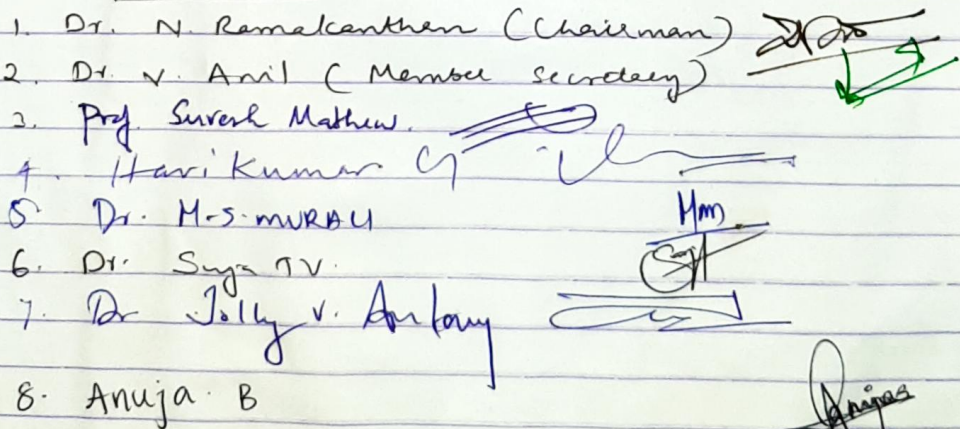 1. Dr. N. Ramakanthan (Chairman)
2. Dr. V. Anil (Member Secretary)
3. Prof. Suresh Mathew.
4. Hari Kumar G
5 Dr. M.S. MURALI
6. Dr. Suja T V.
7. Dr Jolly V. Antony
8. Anuja B